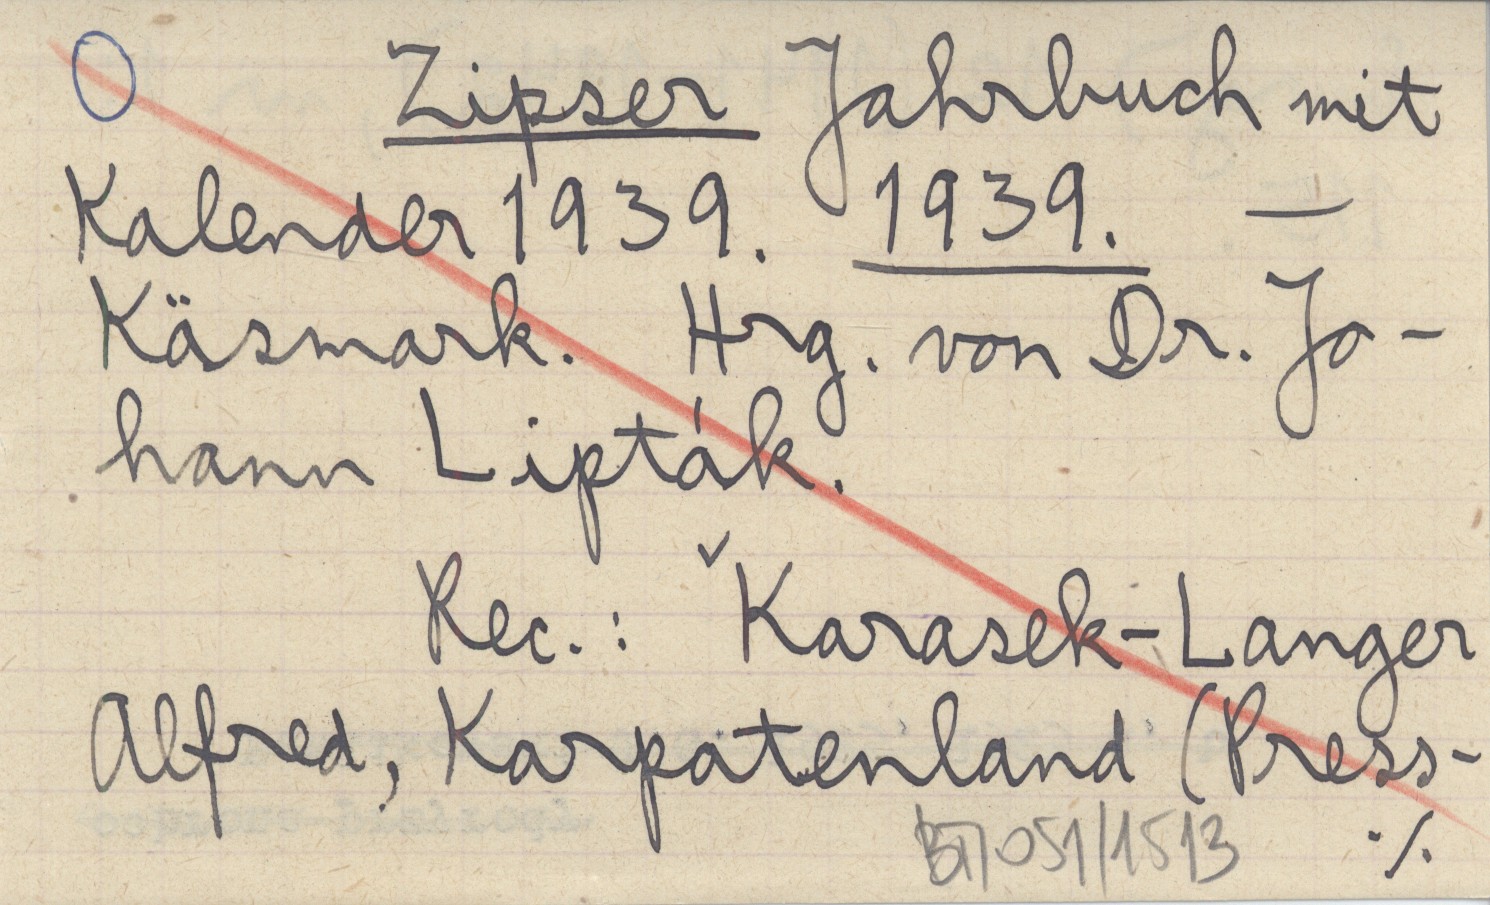 Zipser Jahrbuch mit
Kalender 1939. 1939. —
Käsmark. Hrg. von Dr. Jo-
hann Lipták.
Rec.: Karasek-Langer
Alfred, Karpatenland (Press-
051/1513 ·/.